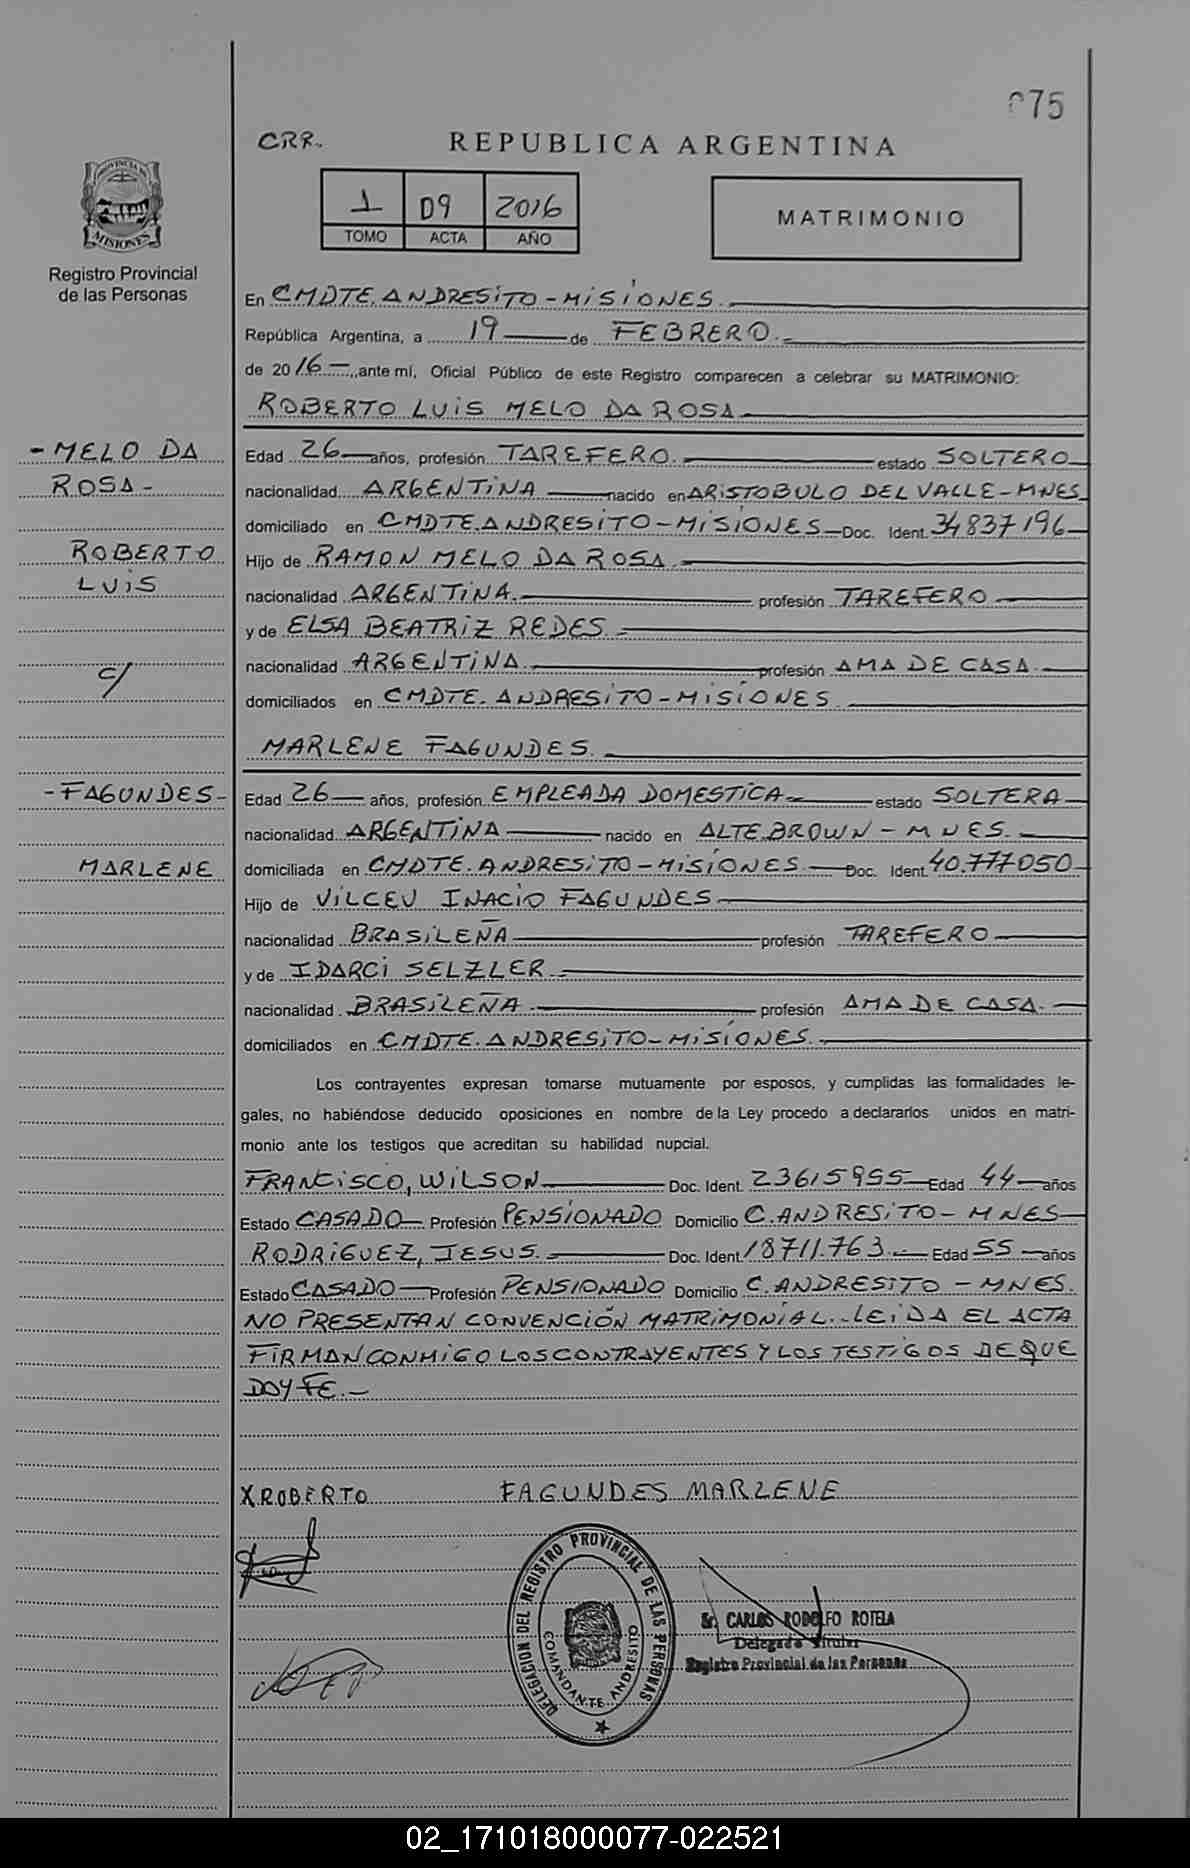 075
CRR.
REPUBLICA ARGENTINA
1 09 2016
TOMO ACTA AÑO
MATRIMONIO
PROVINCIA DE
MISIONES
Registro Provincial
de las Personas
En CMDTE. ANDRESITO - MISIONES.
República Argentina, a 19 de FEBRERO.
de 2016 ante mí, Oficial Público de este Registro comparecen a celebrar su MATRIMONIO:
ROBERTO LUIS MELO DA ROSA
- MELO DA
ROSA -
ROBERTO
LUIS
c/
- FAGUNDES -
MARLENE
Edad 26 años, profesión TAREFERO. estado SOLTERO
nacionalidad ARGENTINA nacido en ARISTOBULO DEL VALLE - MNES
domiciliado en CMDTE. ANDRESITO - MISIONES Doc. Ident. 34837196
Hijo de RAMON MELO DA ROSA
nacionalidad ARGENTINA. profesión TAREFERO
y de ELSA BEATRIZ REDES.
nacionalidad ARGENTINA. profesión AMA DE CASA.
domiciliados en CMDTE. ANDRESITO - MISIONES.
MARLENE FAGUNDES.
Edad 26 años, profesión EMPLEADA DOMESTICA estado SOLTERA
nacionalidad ARGENTINA nacido en ALTE. BROWN - MNES.
domiciliada en CMDTE. ANDRESITO - MISIONES. Doc. Ident. 40.777050
Hijo de VILCEU INACIO FAGUNDES
nacionalidad BRASILEÑA profesión TAREFERO
y de IDARCI SELZLER
nacionalidad BRASILEÑA. profesión AMA DE CASA.
domiciliados en CMDTE. ANDRESITO - MISIONES.
Los contrayentes expresan tomarse mutuamente por esposos, y cumplidas las formalidades le-
gales, no habiéndose deducido oposiciones en nombre de la Ley procedo a declararlos unidos en matri-
monio ante los testigos que acreditan su habilidad nupcial.
FRANCISCO, WILSON Doc. Ident. 23615955 Edad 44 años
Estado CASADO Profesión PENSIONADO Domicilio C. ANDRESITO - MNES
RODRIGUEZ, JESUS. Doc. Ident. 18711.763 Edad 55 años
Estado CASADO Profesión PENSIONADO Domicilio C. ANDRESITO - MNES.
NO PRESENTAN CONVENCIÓN MATRIMONIAL.- LEIDA EL ACTA
FIRMAN CONMIGO LOS CONTRAYENTES Y LOS TESTIGOS DE QUE
DOY FE.-
X ROBERTO FAGUNDES MARLENE
DELEGACION DEL REGISTRO PROVINCIAL DE LAS PERSONAS
COMANDANTE ANDRESITO
Sr. CARLOS RODOLFO ROTELA
Delegado Titular
Registro Provincial de las Personas
02_171018000077-022521